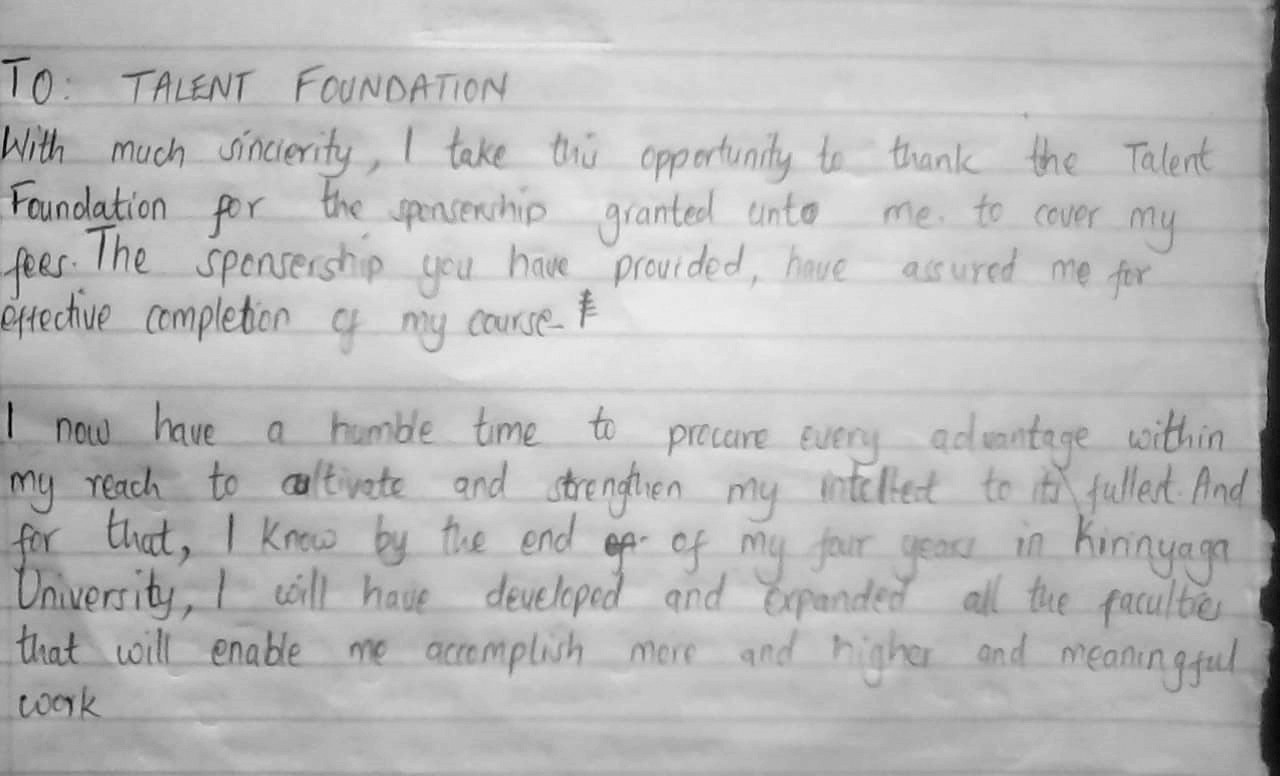 TO: TALENT FOUNDATION
With much sincierity, I take this opportunity to thank the Talent
Foundation for the sponsership granted unto me. to cover my
fees. The sponsership you have provided, have assured me for
effective completion of my course.
I now have a humble time to procure every advantage within
my reach to cultivate and strengthen my intellect to its fullest. And
for that, I know by the end of of my four years in Kirinyaga
University, I will have developed and expanded all the faculties
that will enable me accomplish more and higher and meaningful
work